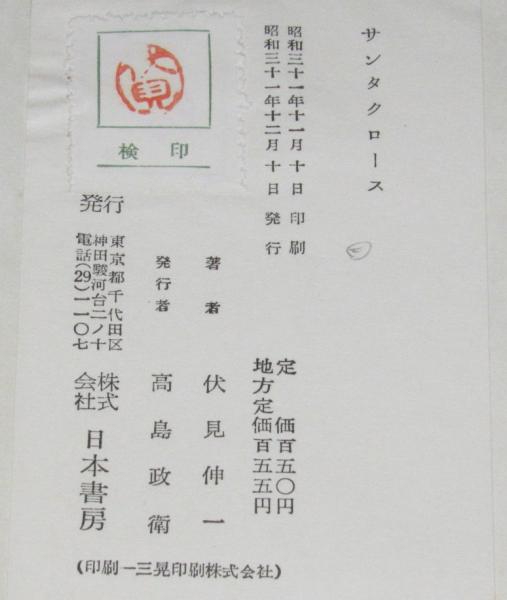 サンタクロース
昭和三十一年十一月十日印刷
昭和三十一年十二月十日発行
定価百五〇円
地方定価百五五円
著者 伏見伸一
発行者 高島政衛
検印
発行
東京都千代田区
神田駿河台二ノ十
電話(29)一一〇七
株式会社 日本書房
(印刷ー三晃印刷株式会社)